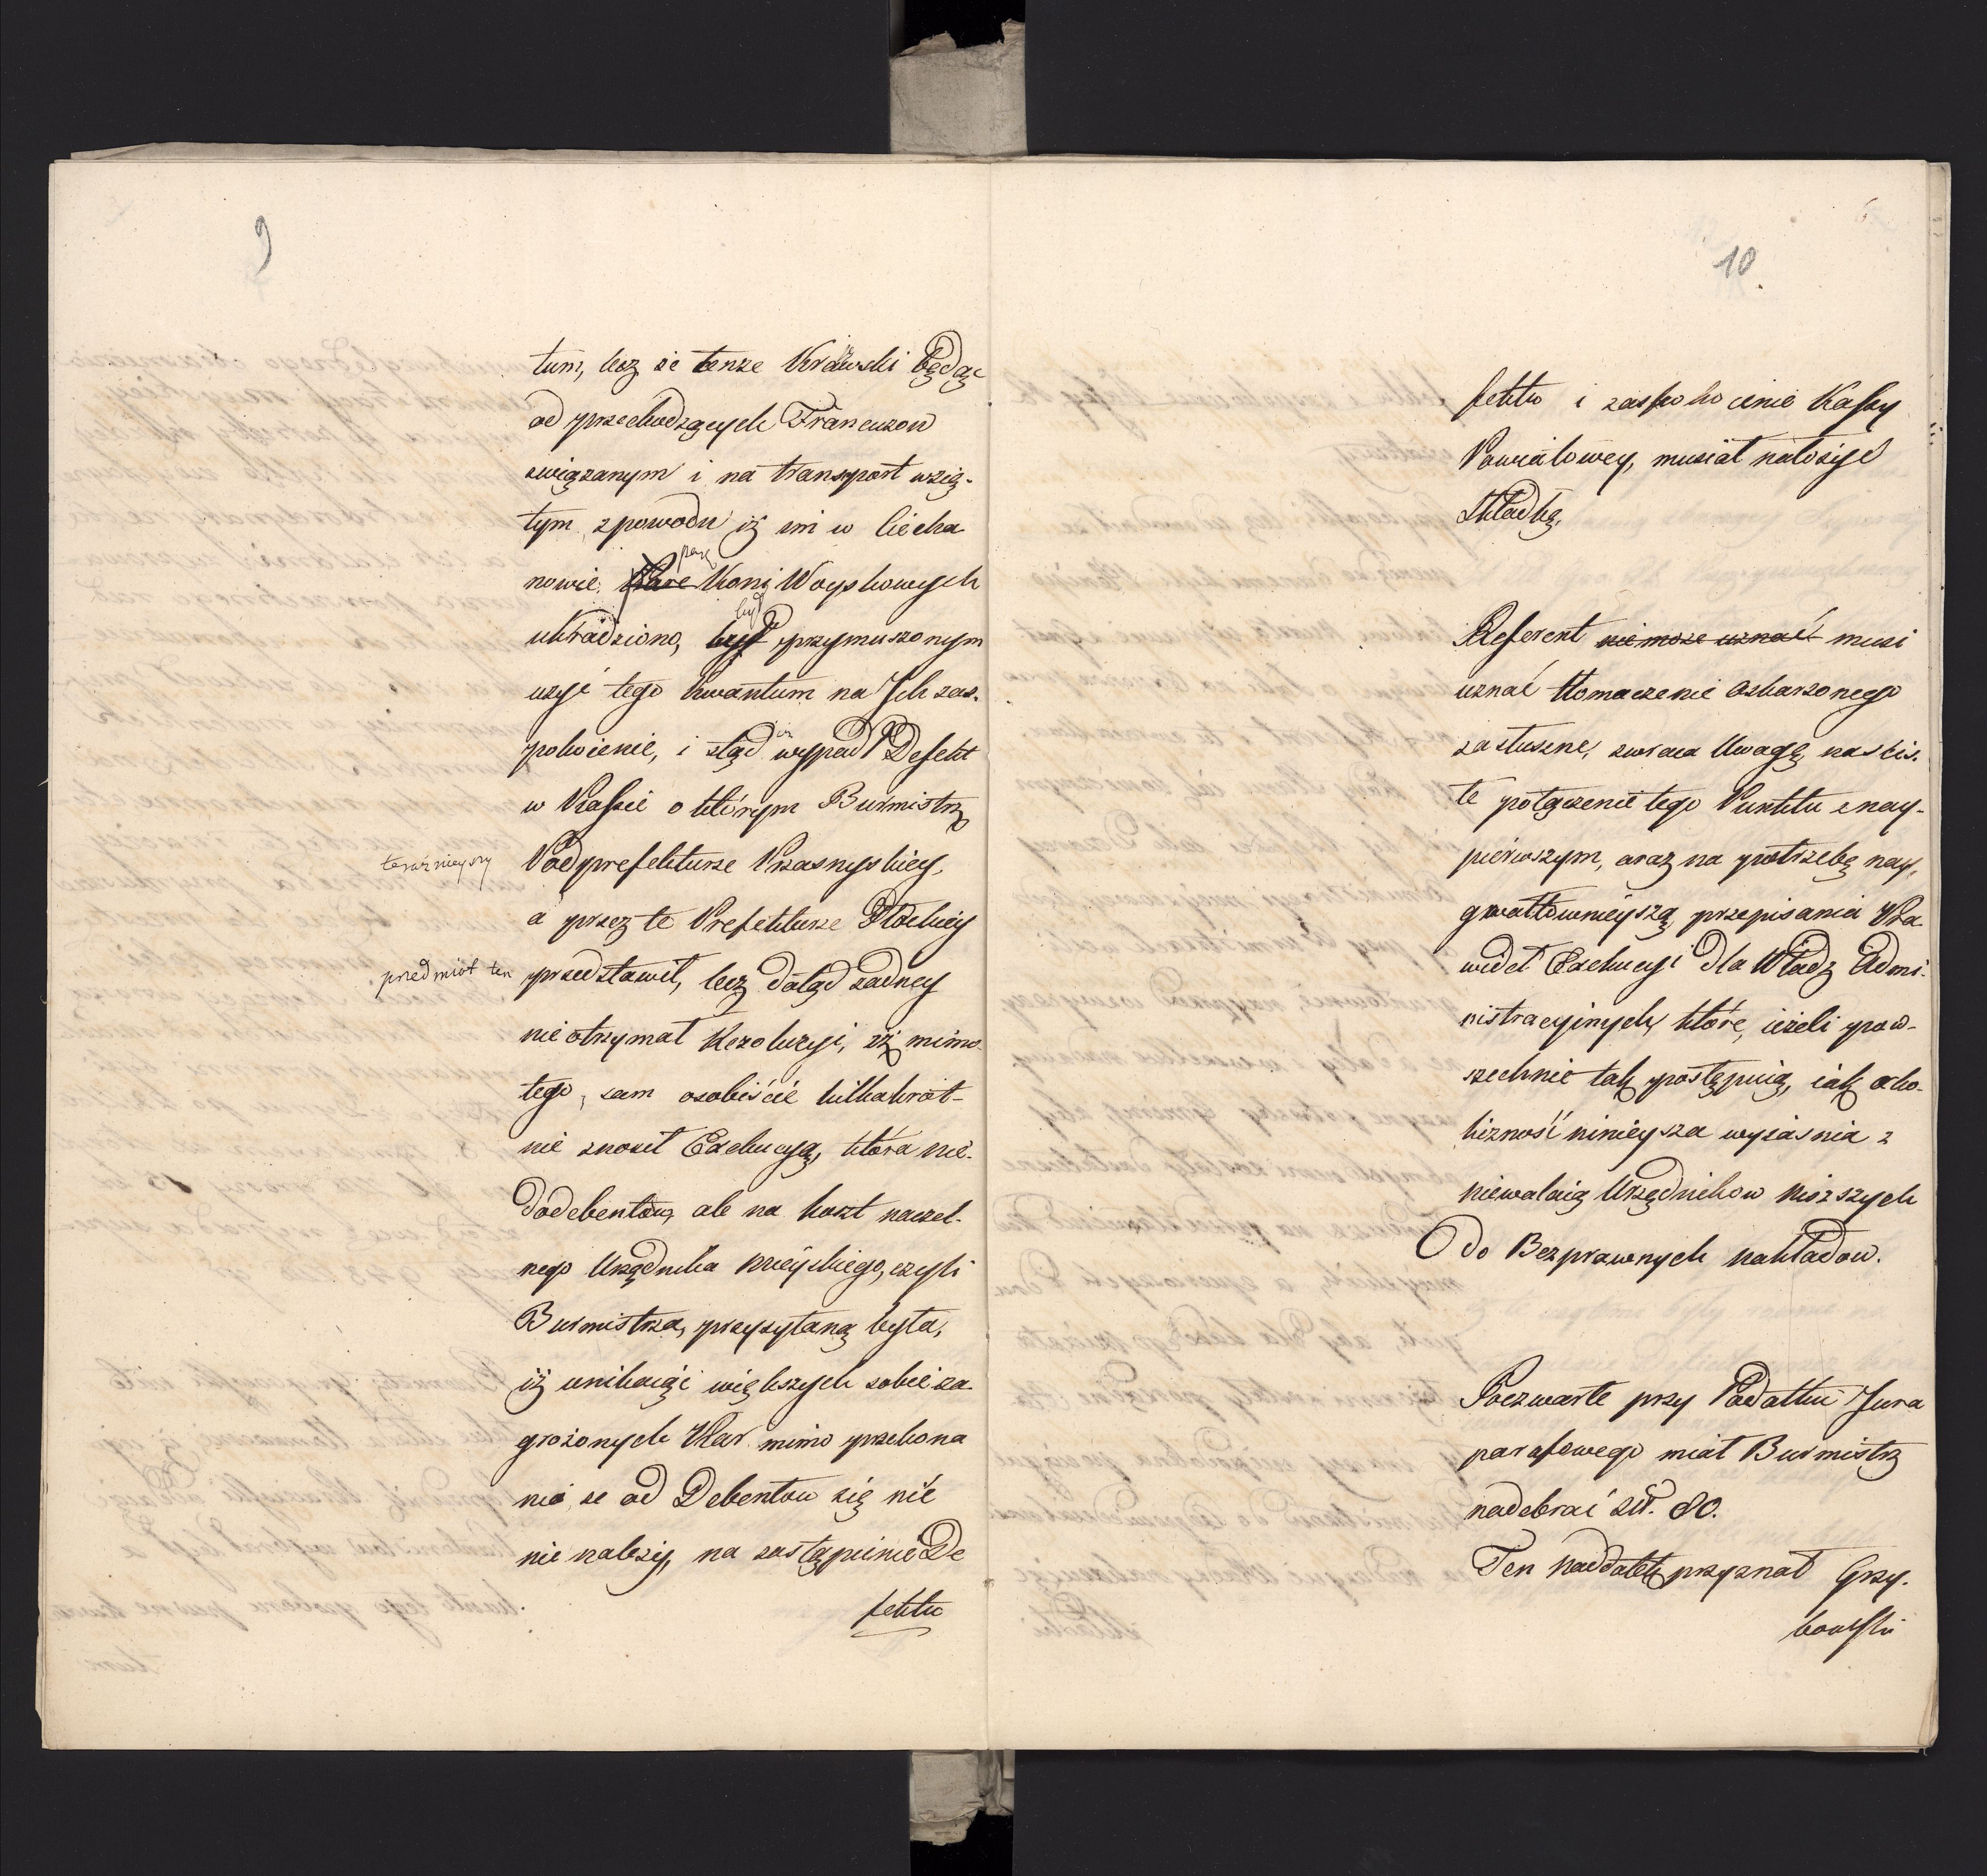 9
tum, lecz że tenże Krajewski będąc
od przechodzących Francuzow
związanym i na transport wzię-
tym z powodu iż im w Ciecha
nowie parę Koni Woyskowych
ukradziono, był przymuszonym
użyć tego kwantum na Ich zas-
pokoienie, i ztąd wypadł Defekt
w Kassie o którym Burmistrz
teraźnieyszy Podprefekturze Przasnyskiey,
a przez te Prefekturze Płockiey
przedmiot ten przedstawił, lecz dotąd żadney
nie otrzymał Rezolucyi, iż mimo
tego, sam osobiście kilkakrot-
nie znosił Exekucyą, która nie
do debentow, ale na koszt naczel-
nego Urzędnika mieyskiego, czyli
Burmistrza, przysyłaną była,
iż unikaiąc większych sobie za
grożonych Kar mimo przekona
nia, że od Debentow się nic
nie należy, na zastąpienie De
fektu
10
fektu i zaspokoienie Kassy
Powiatowey, musiał nałożyć
Składkę.
Referent nie może uznać musi
uznać tłomaczenie Oskarżonego
za słuszne, zwraca Uwagę na ścis-
łe połączenie tego Punktu z nay-
pierwszym, oraz na potrzebę nay-
gwałtownieyszą przepisania Pra
wideł Exekucyi dla Władz Admi-
nistracyinych, które, ieżeli pow-
szechnie tak postępuią, iak oko-
liczność ninieysza wyiaśnia z
niewalaią Urzędnikow niższych
do Bezprawnych nakładow.
Poczwarte przy Podatku Jura
parafowego miał Burmistrz
nadebrać Zł. 80.
Ten naddatek przyznał Grzy-
bowski